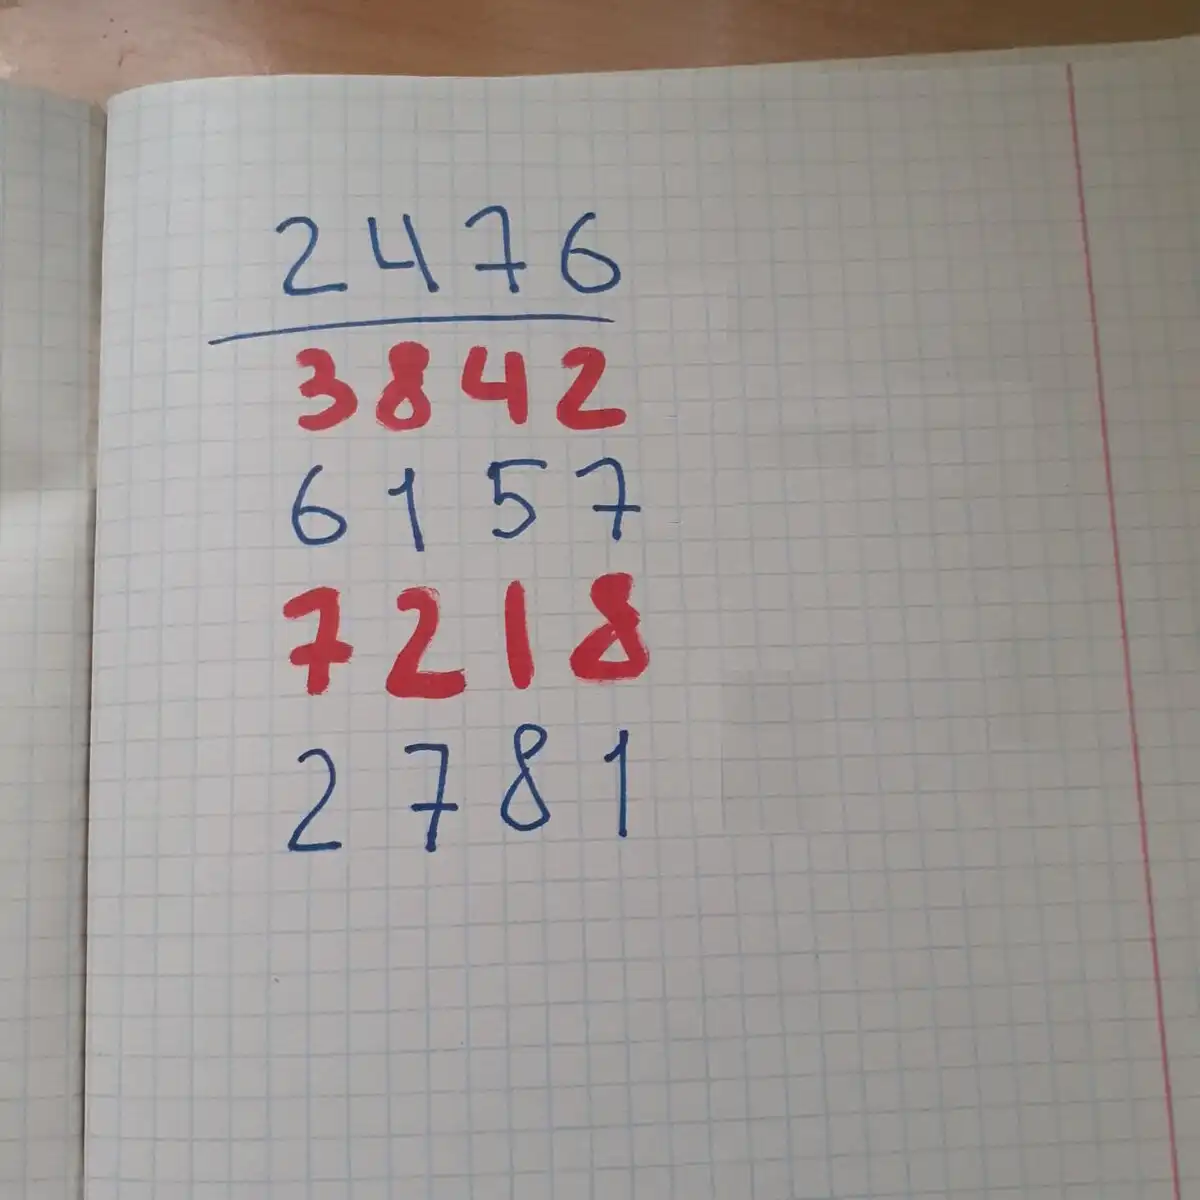 2476
3842
6157
7218
2781